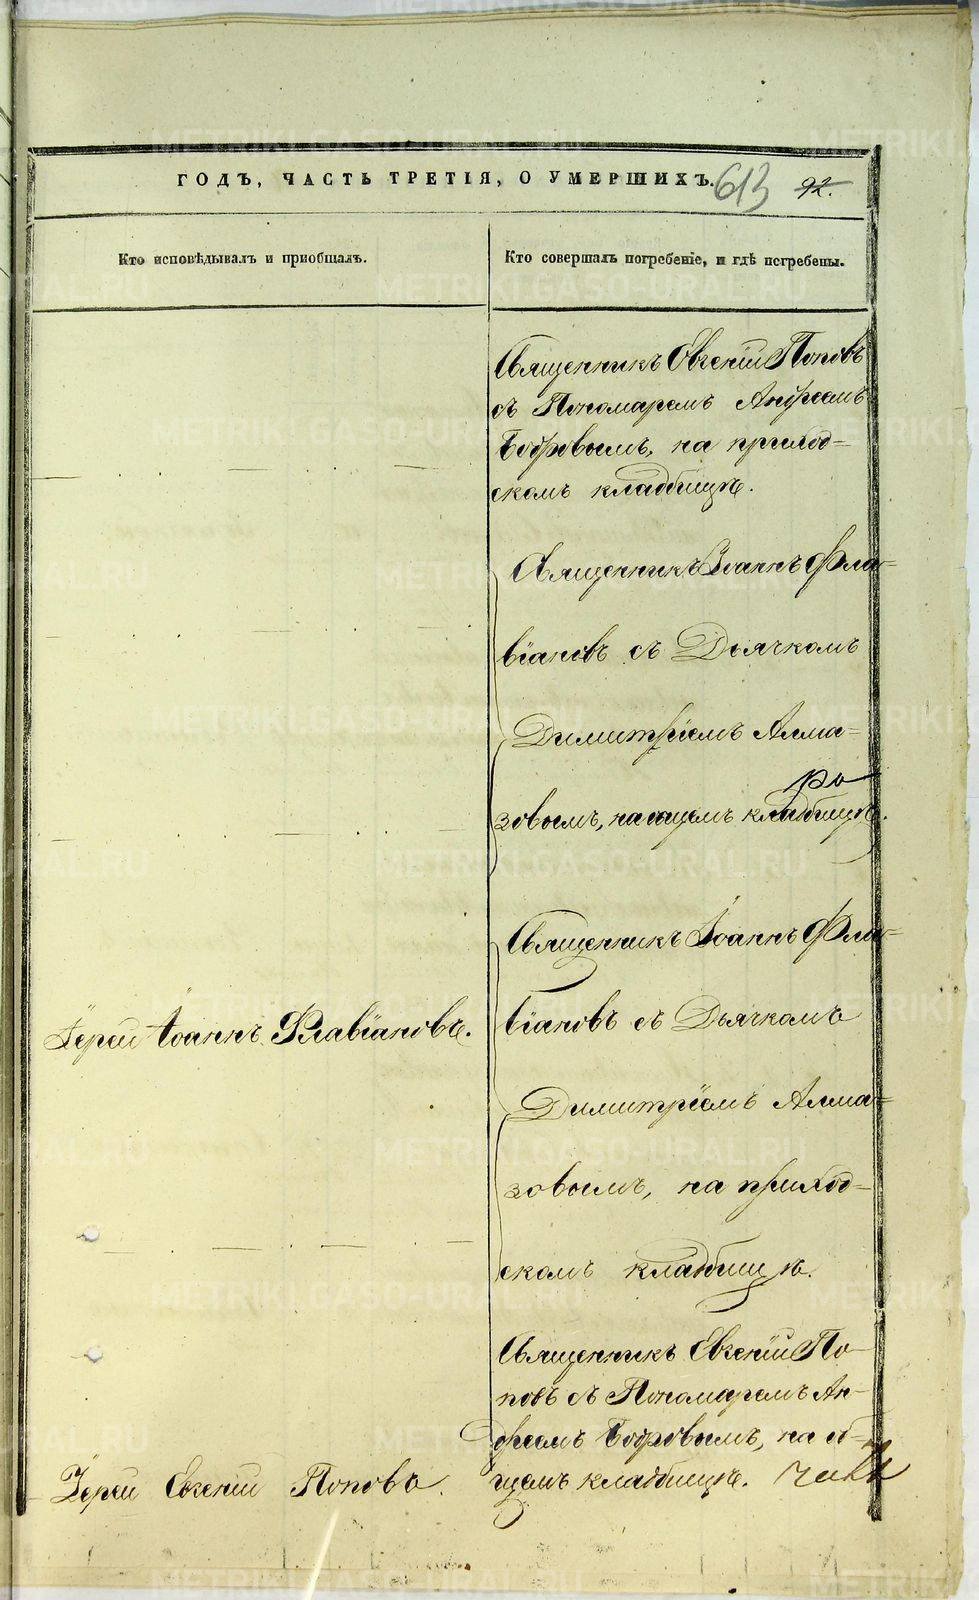 ГОДЪ, ЧАСТЬ ТРЕТІЯ, О УМЕРШИХЪ. 613 92.
Кто исповѣдывалъ и пріобщалъ.
Кто совершалъ погребеніе, и гдѣ погребены.
Священникъ Евгеній Поповъ
съ Пономаремъ Андреемъ
Бобровымъ, на приход-
скомъ кладбищѣ.
Священникъ Іоаннъ Фла-
віановъ съ Дьячкомъ
Димитріемъ Алма-
зовымъ, на общемъ кладбищѣ.
Священникъ Іоаннъ Фла-
віановъ съ Дьячкомъ
Димитріемъ Алма-
зовымъ, на приход-
скомъ кладбищѣ.
Іерей Іоаннъ Флавіановъ.
Священникъ Евгеній По-
повъ съ Пономаремъ Ан-
дреемъ Бобровымъ, на об-
щемъ кладбищѣ.
Іерей Евгеній Поповъ.
METRIKI.GASO-URAL.RU